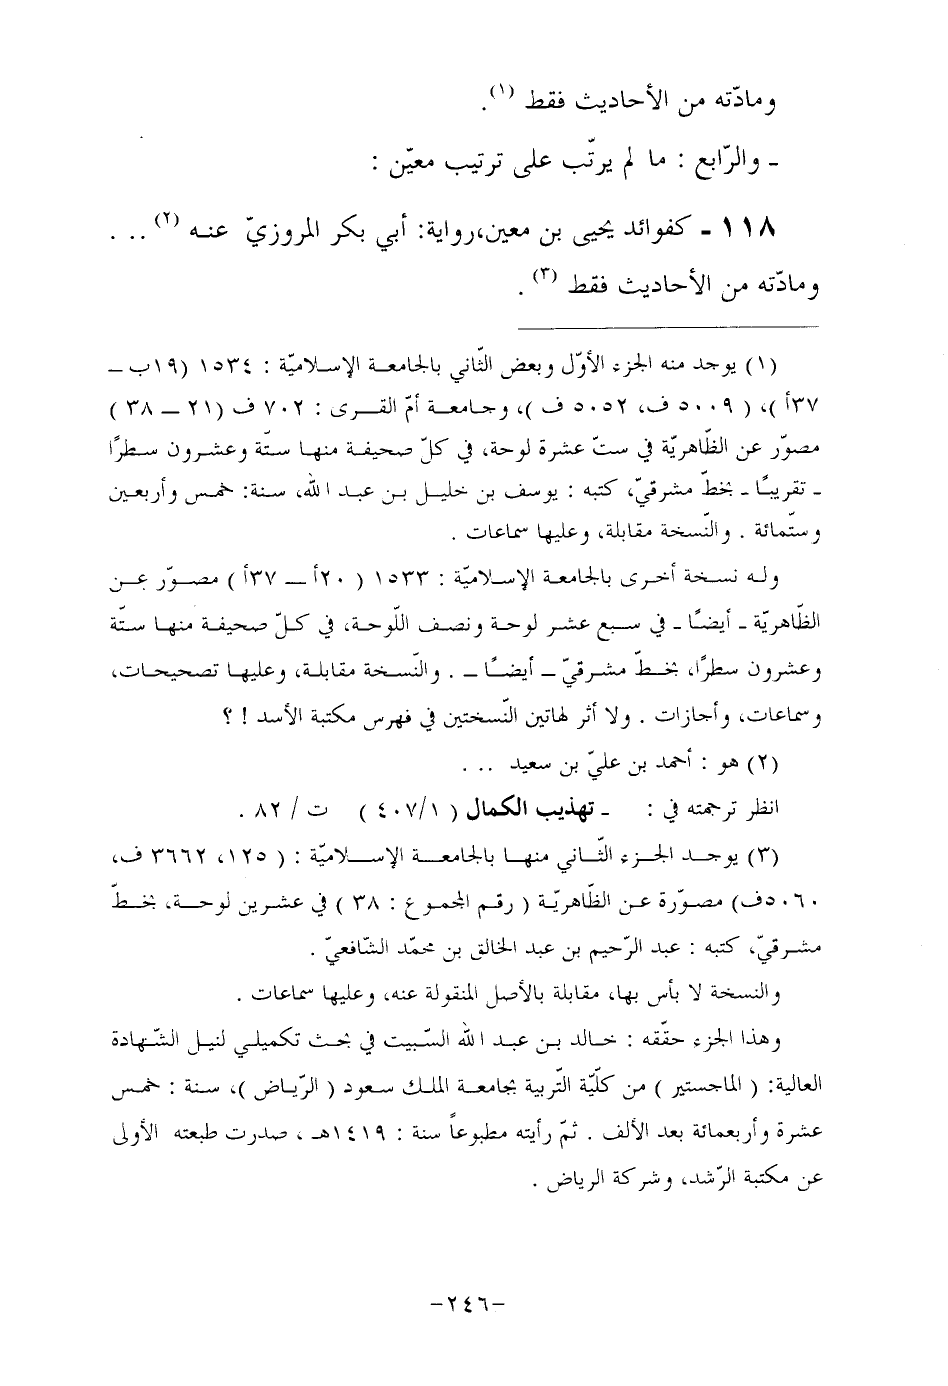 ومادّته من الأحاديث فقط (١).
- والرّابع : ما لم يرتّب على ترتيب معيّن :
١١٨ - كفوائد يحيى بن معين، رواية: أبي بكر المروزيّ عنه (٢) ...
ومادّته من الأحاديث فقط (٣) .
(١) يوجد منه الجزء الأوّل وبعض الثّاني بالجامعة الإسلاميّة : ١٥٣٤ (١٩ب -
٣٧أ )، ( ٥٠٠٩ ف، ٥٠٥٢ ف )، وجامعة أمّ القرى : ٧٠٢ ف (٢١ - ٣٨ )
مصوّر عن الظّاهريّة في ستّ عشرة لوحة، في كلّ صحيفة منها ستّة وعشرون سطرًا
- تقريبًا - بخطّ مشرقيّ، كتبه : يوسف بن خليل بن عبد الله، سنة: خمس وأربعين
وستّمائة . والنّسخة مقابلة، وعليها سماعات .
وله نسخة أخرى بالجامعة الإسلاميّة : ١٥٣٣ ( ٢٠أ - ٣٧أ ) مصوّر عن
الظّاهريّة - أيضًا - في سبع عشر لوحة ونصف اللّوحة، في كلّ صحيفة منها ستّة
وعشرون سطرًا، بخطّ مشرقيّ - أيضًا - . والنّسخة مقابلة، وعليها تصحيحات،
وسماعات، وأجازات . ولا أثر لهاتين النّسختين في فهرس مكتبة الأسد ! ؟
(٢) هو : أحمد بن عليّ بن سعيد ...
انظر ترجمته في : - تهذيب الكمال ( ٤٠٧/١ ) ت / ٨٢ .
(٣) يوجد الجزء الثّاني منها بالجامعة الإسلاميّة : ( ١٢٥، ٣٦٦٢ ف،
٥٠٦٠ف) مصوّرة عن الظّاهريّة ( رقم المجموع : ٣٨ ) في عشرين لوحة، بخطّ
مشرقيّ، كتبه : عبد الرّحيم بن عبد الخالق بن محمّد الشّافعيّ .
والنسخة لا بأس بها، مقابلة بالأصل المنقولة عنه، وعليها سماعات .
وهذا الجزء حقّقه : خالد بن عبد الله السّبيت في بحث تكميلي لنيل الشّهادة
العالية: ( الماجستير ) من كلّيّة التّربية بجامعة الملك سعود ( الرّياض )، سنة : خمس
عشرة وأربعمائة بعد الألف . ثمّ رأيته مطبوعاً سنة : ١٤١٩هـ ، صدرت طبعته الأولى
عن مكتبة الرّشد، وشركة الرياض .
-٢٤٦-